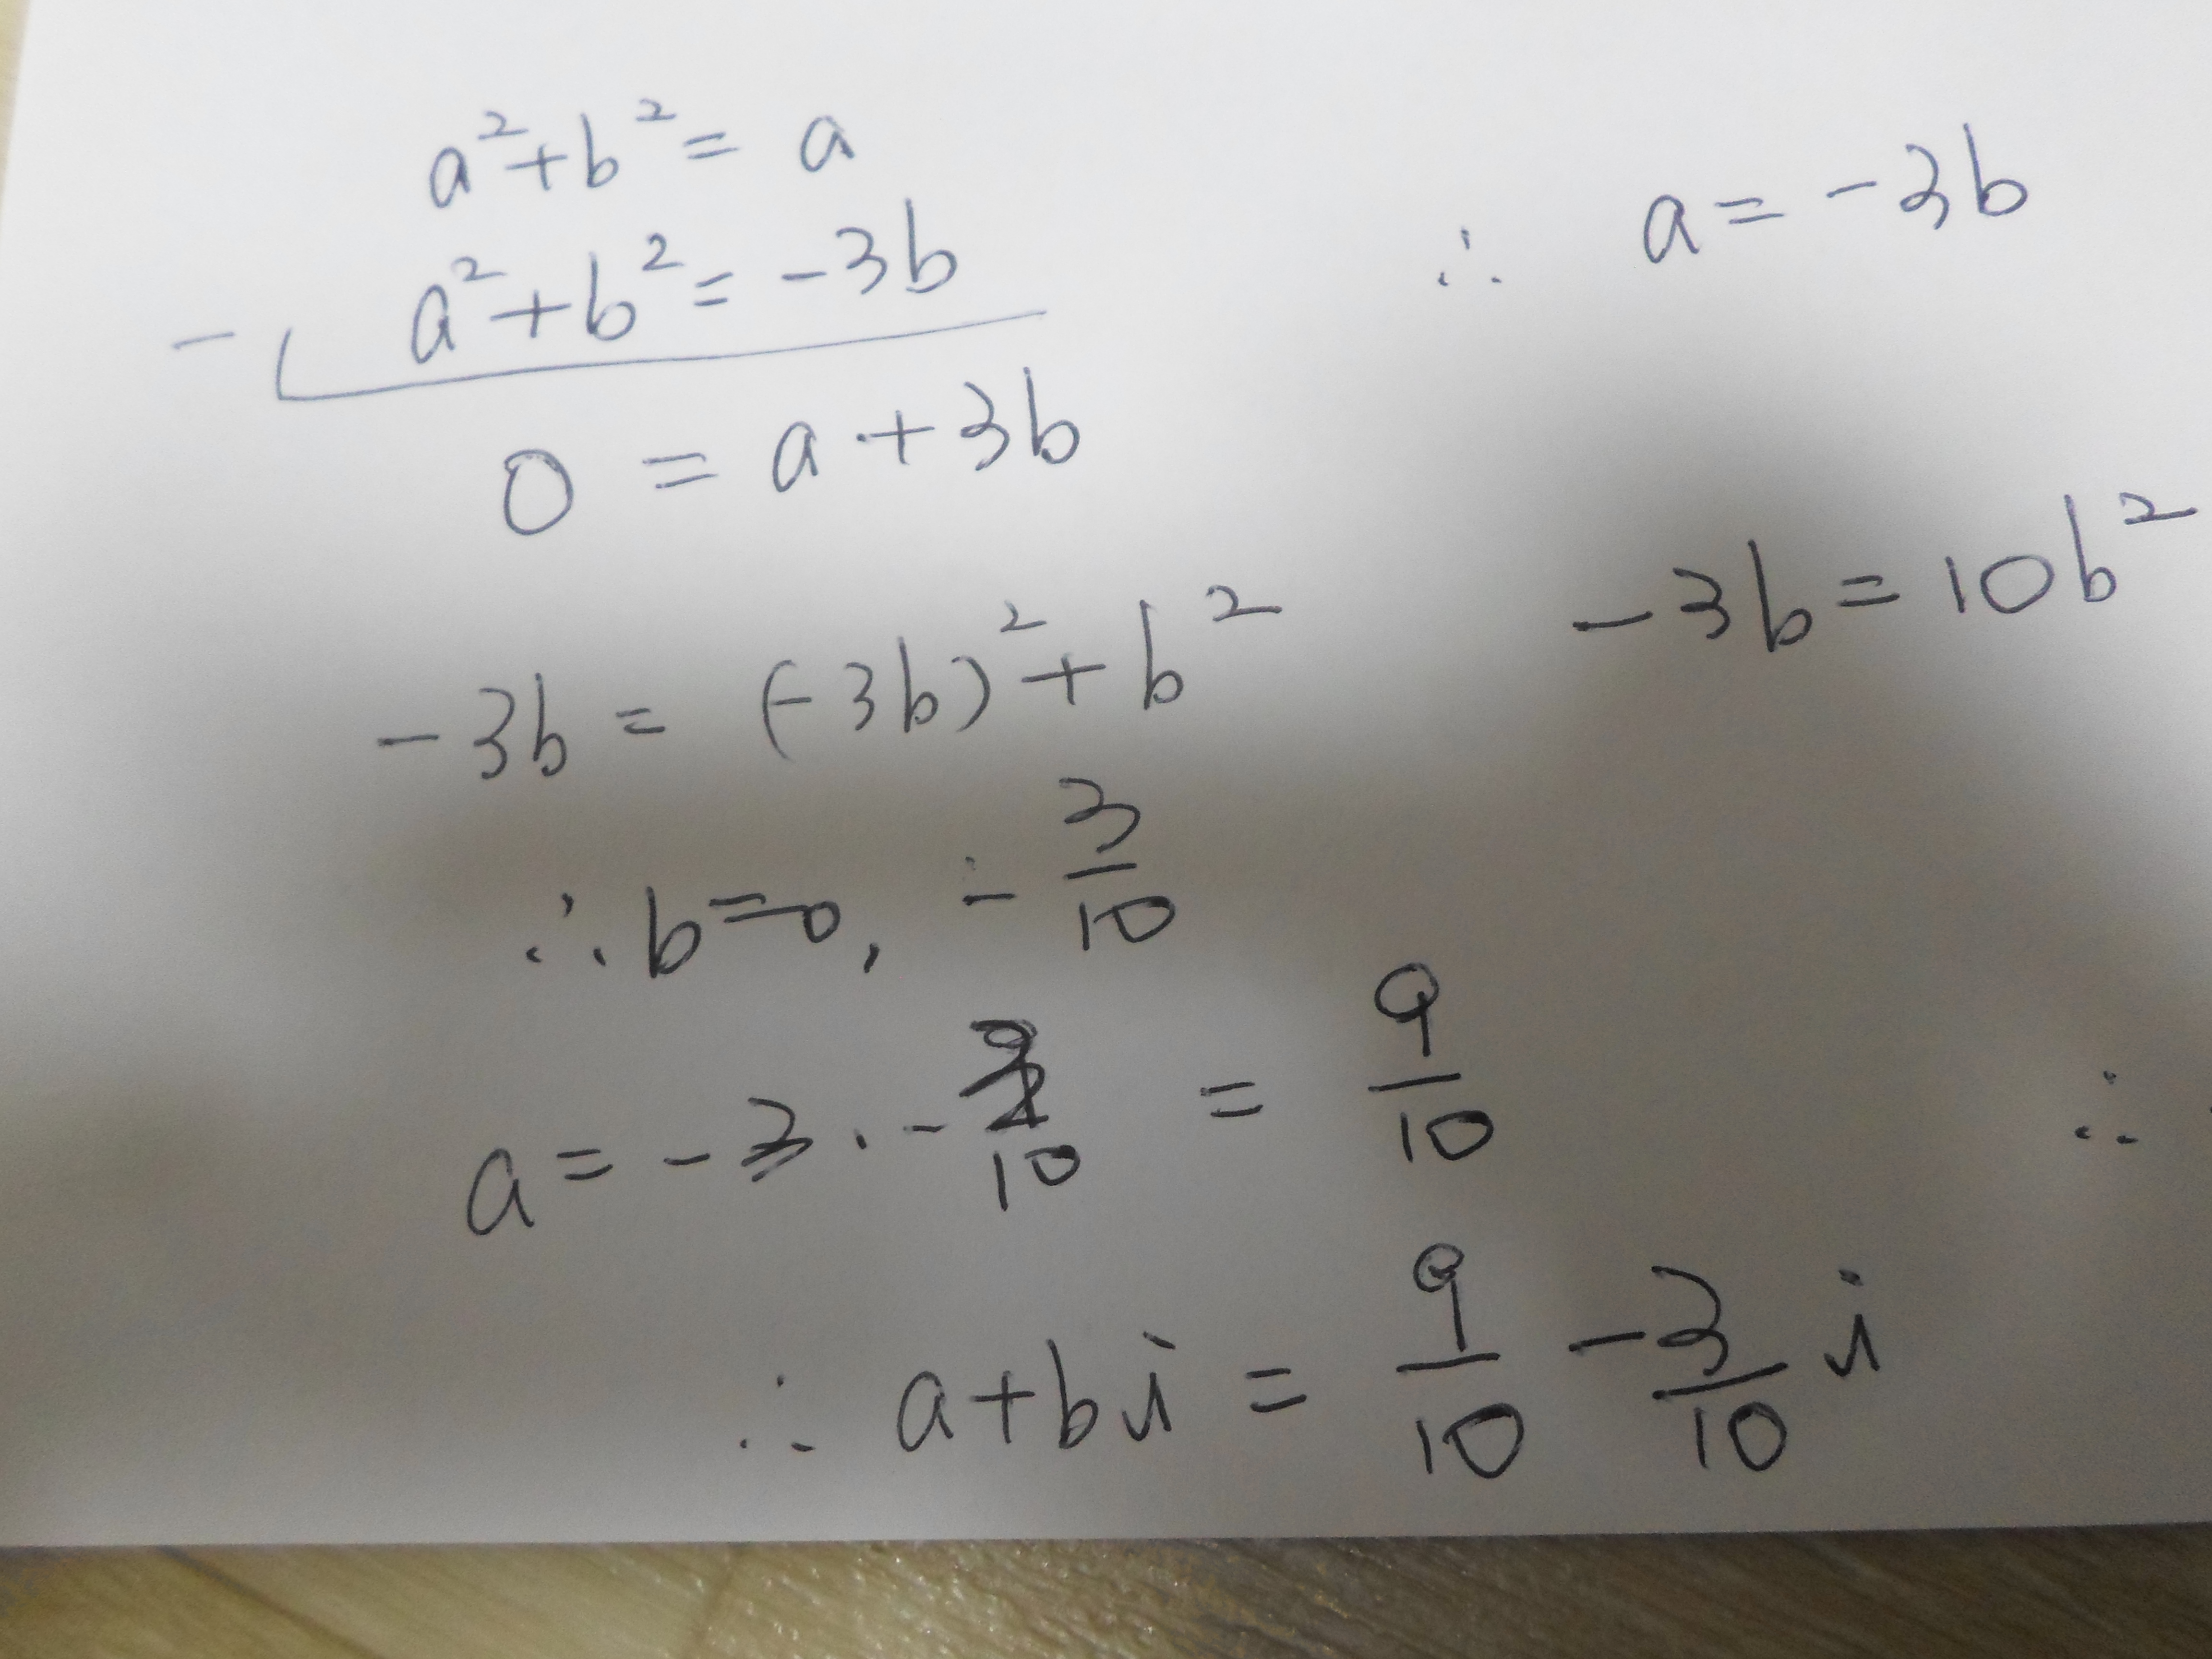 a²+b²= a
- a²+b²= -3b
0 = a+3b
∴ a= -3b
-3b= (-3b)²+b²
-3b=10b²
∴ b=0, -3/10
a= -3·-3/10 = 9/10
∴
∴ a+bi = 9/10 -3/10 i